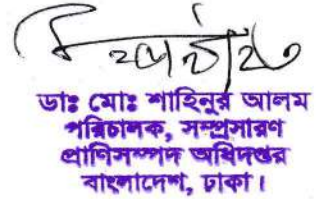 ডাঃ মোঃ শাহিনুর আলম
পরিচালক, সম্প্রসারণ
প্রাণিসম্পদ অধিদপ্তর
বাংলাদেশ, ঢাকা।